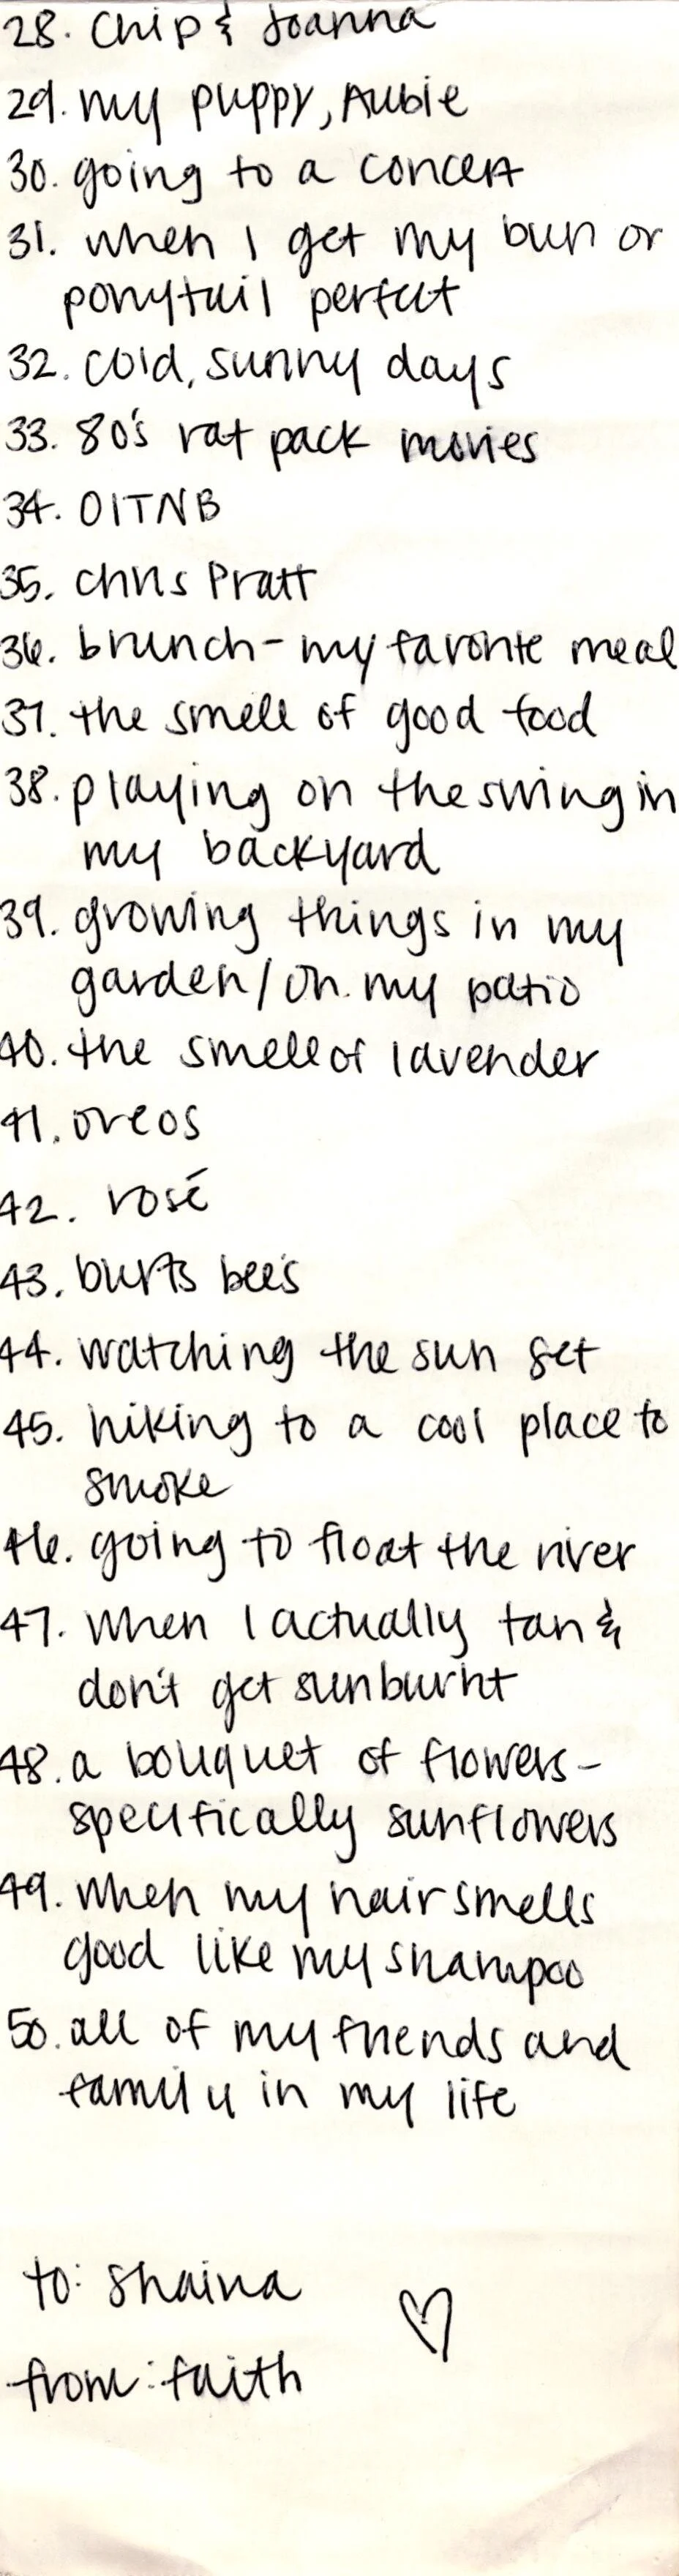 28. Chip & Joanna
29. my puppy, Aubie
30. going to a concert
31. when I get my bun or
ponytail perfect
32. cold, sunny days
33. 80's rat pack movies
34. OITNB
35. Chris Pratt
36. brunch - my favorite meal
37. the smell of good food
38. playing on the swing in
my backyard
39. growing things in my
garden/on my patio
40. the smell of lavender
41. oreos
42. rosé
43. burts bee's
44. watching the sun set
45. hiking to a cool place to
smoke
46. going to float the river
47. when I actually tan &
don't get sunburnt
48. a bouquet of flowers -
specifically sunflowers
49. when my hair smells
good like my shampoo
50. all of my friends and
family in my life
to: Shaina
from: faith